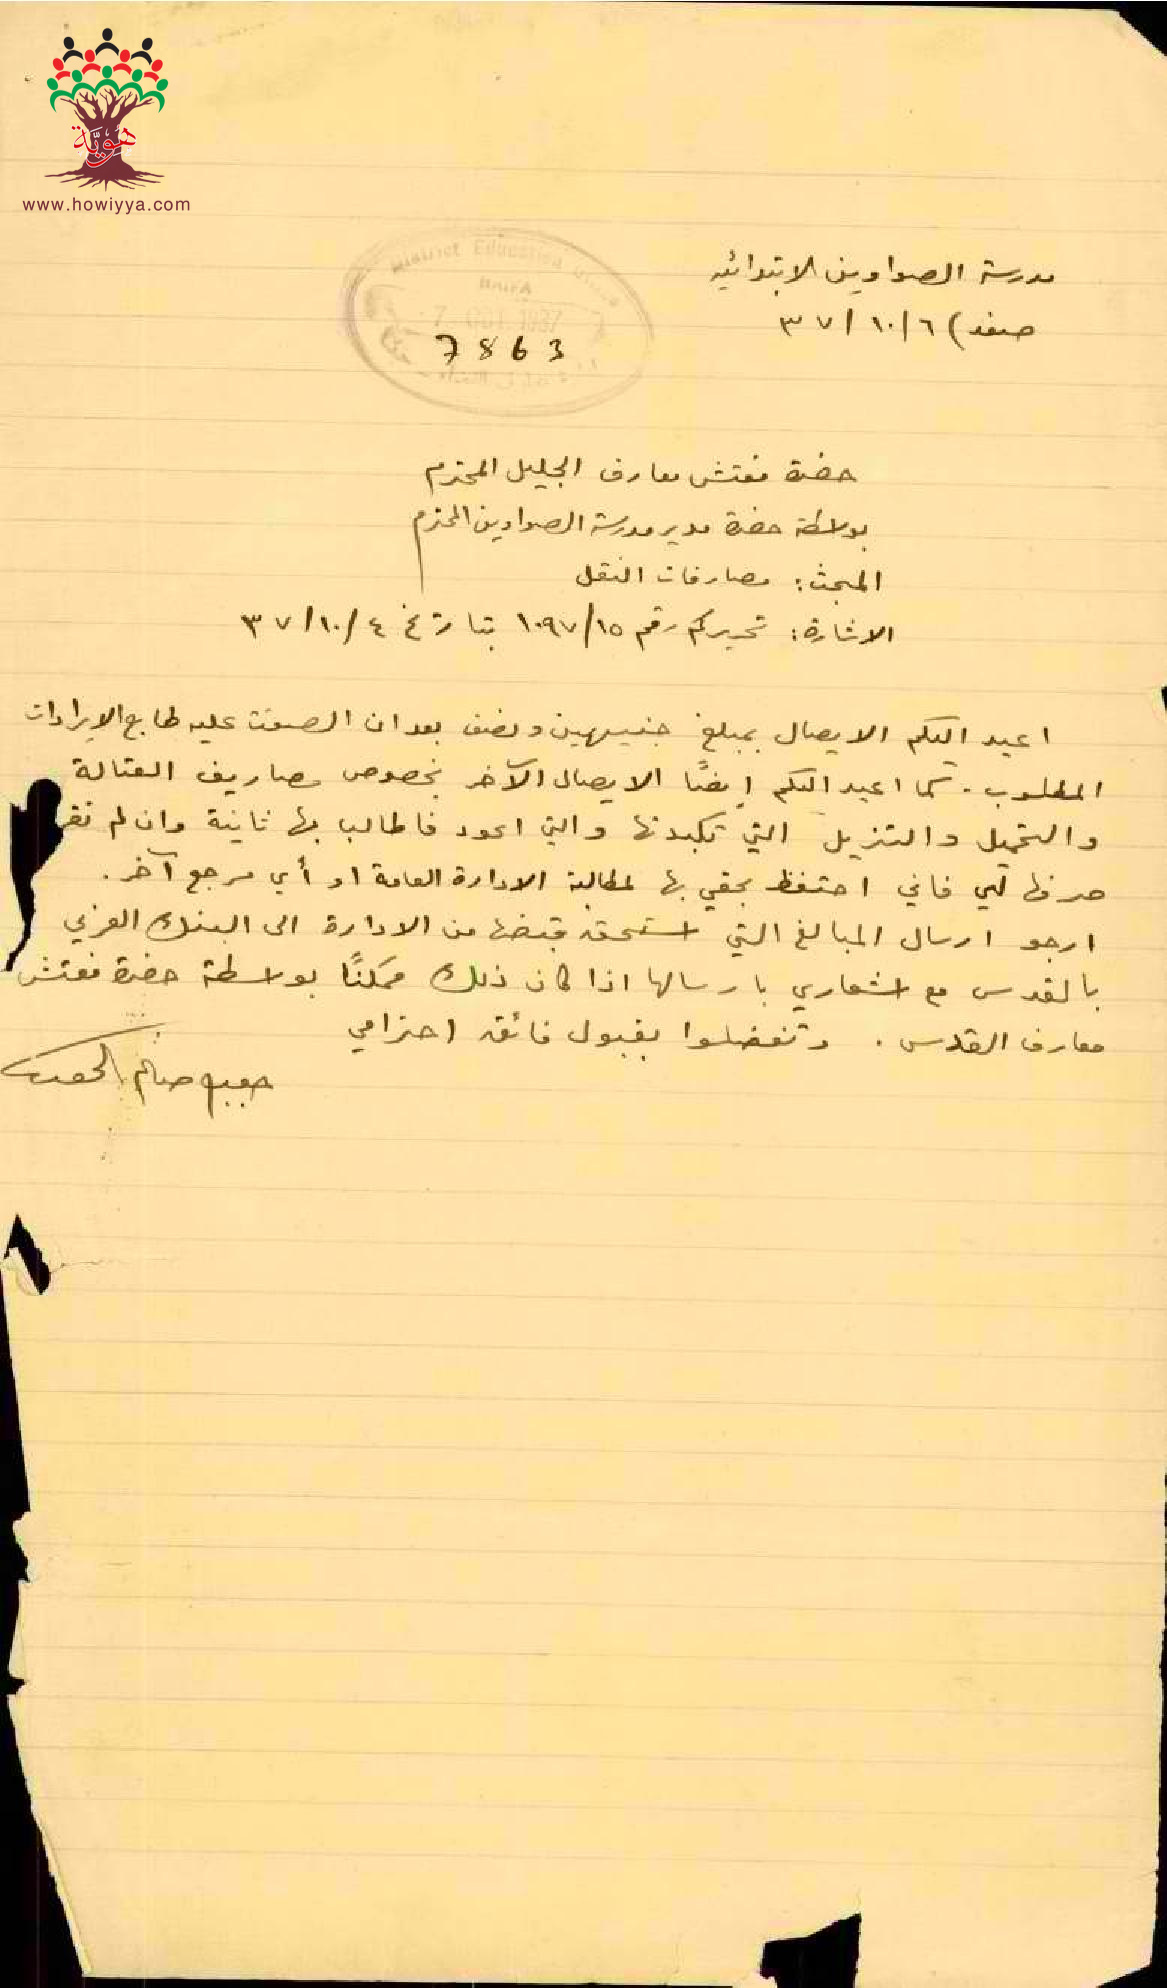 هوية
www.howiyya.com
مدرسة الصواوين الابتدائيه
صفد) ٦/١٠/٣٧
District Education
HAIFA
7 OCT 1937
7863
حضرة مفتش معارف الجليل المحترم
بواسطة حضرة مدير مدرسة الصواوين المحترم
المبحث: مصارفات النقل
الاشارة: تحريركم رقم ١٠٩٧/١٥ بتاريخ ٤/١٠/٣٧
اعيد اليكم الايصال بمبلغ جنيهين ونصف بعد ان الصقت عليه طابع الايرادات
المطلوب. كما اعيد اليكم ايضًا الايصال الآخر بخصوص مصاريف العتالة
والتحميل والتنزيل التي تكبدتها والتي اعود فاطالب بها ثانية وان لم
صرفها لي فاني احتفظ بحقي بها لمطالبة الادارة العامة او أي مرجع آخر.
ارجو ارسال المبالغ التي استحق قبضها من الادارة الى البنك العربي
بالقدس مع اشعاري بارسالها اذا كان ذلك ممكنًا بواسطة حضرة مفتش
معارف القدس. وتفضلوا بقبول فائق احترامي